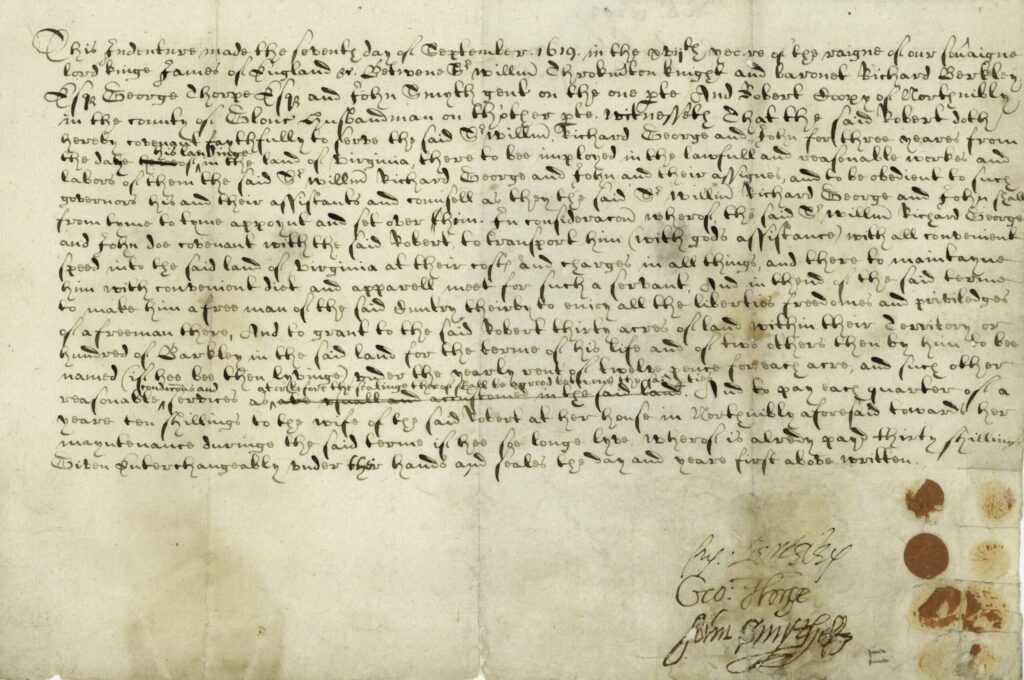 This Indenture, made the seventh day of September. 1619. in the xvijth yeere of the raigne of our sovaigne
lord kinge James of England &c. Betwene Sr willm Throkmton knight and baronet Richard Berkley
Esqr George Thorpe Esqr and John Smyth gent on the one pte. And Robert Coopy of Northnibly
in the county of Glouc husbandman on thother pte. Witnesseth That the said Robert doth
hereby covenant faythfully to serve the said Sr willm, Richard George and John for three yeares from
the daye of his landinge in the land of virginia, there to bee imployed in the lawfull and reasonable workes and
labors of them the said Sr willm Richard George and John and their assignes, and to be obedient to such
governors his and their assistants and counsell as they the said Sr willm Richard George and John shall
from tyme to tyme appoint and set over him. In consideracon wherof, the said Sr willm Richard George
and John doe covenant with the said Robert to transport him (with gods assistance) with all convenient
speed into the said land of virginia at their costs and charges in all things, and there to maintayne
him with convenient diet and apparell meet for such a servant, And in thend of the said terme
to make him a free man of the said Cuntry theirby to enioy all the liberties freedomes and priviledges
of a freeman there, And to grant to the said Robert thirty acres of land within their Territory or
hundred of Barkley in the said land for the terme of his life and of two others then by him to be
named (if hee bee then lyvinge) vnder the yearly rent of twelve pence for each acre, and such other
condicons and at or before the sealinge therof shall be agreed betwene the said parties
reasonable services as in the said land. And to pay each quarter of a
yeare ten shillings to the wife of the said Robert at her house in Northnibly aforesaid towards her
mayntenance duringe the said terme if hee soe longe lyve, wherof is alredy payd thirty shillings
Given Enterchangeably vnder their hands and seales the day and yeare first above written.
Ry: Berkley
Geo: Thorpe
John Smyth
11